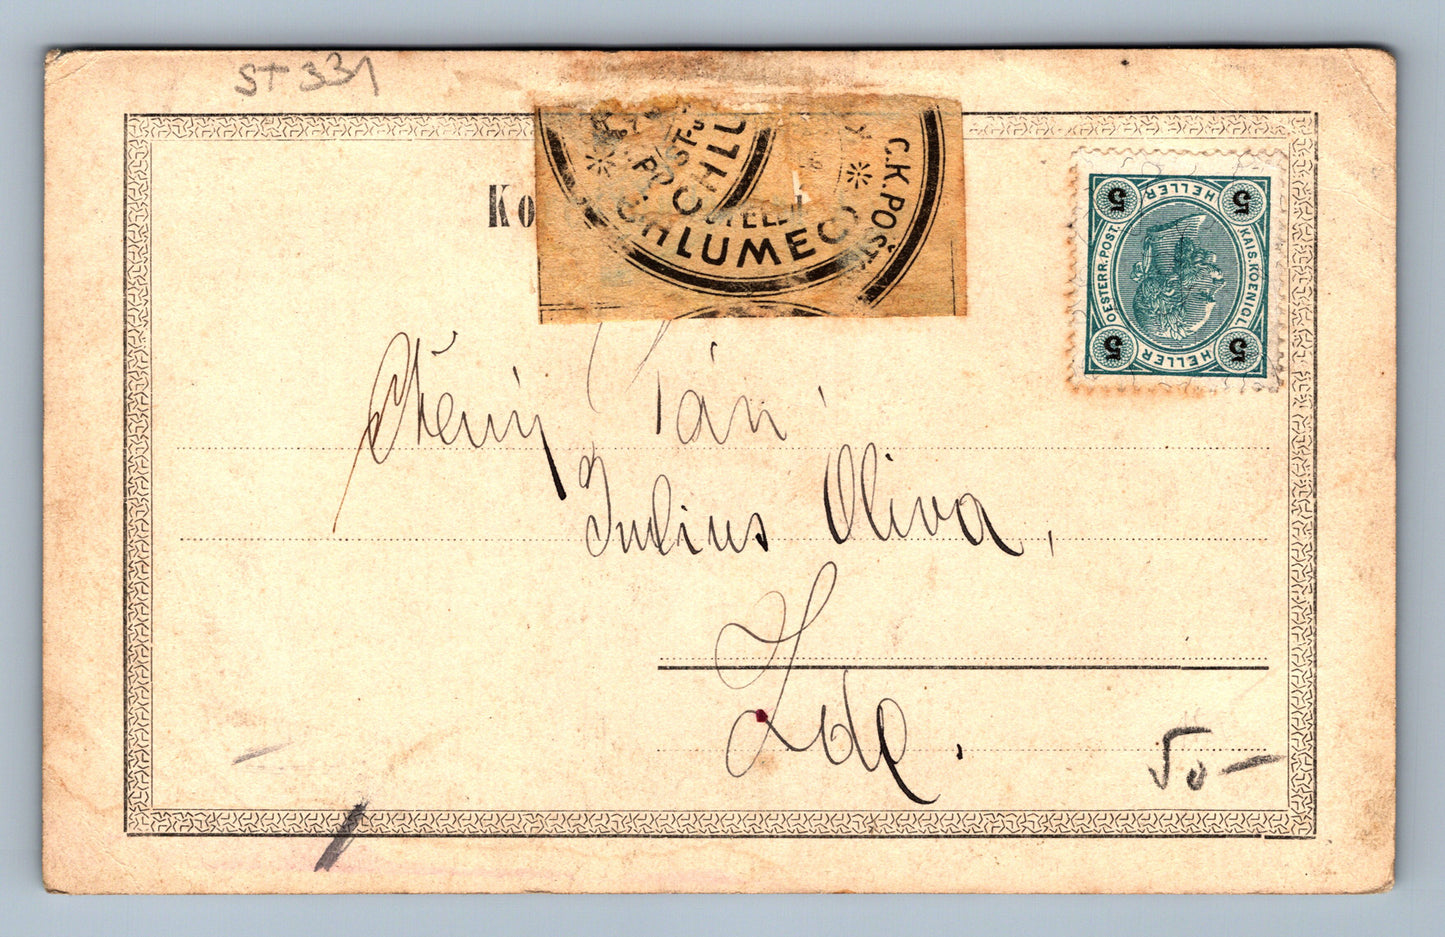 ST 331
Ko
C.K. POŠT
CHLUMEC
CHLU
POST-
5 HELLER 5
OESTERR. POST.
KAIS. KOENIGL.
5 HELLER 5
Ctěný Pán
Julius Oliva,
Zde.
50-